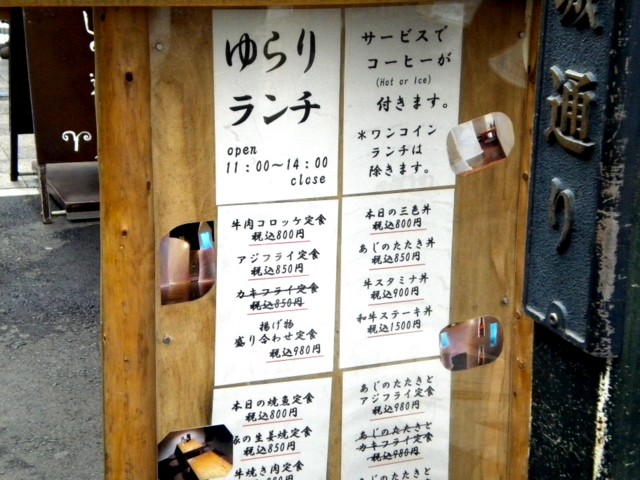 ゆらり
ランチ
open
11:00〜14:00
close
サービスで
コーヒーが
(Hot or Ice)
付きます。
*ワンコイン
ランチは
除きます。
牛肉コロッケ定食
税込800円
アジフライ定食
税込850円
カキフライ定食
税込850円
揚げ物
盛り合わせ定食
税込980円
本日の三色丼
税込800円
あじのたたき丼
税込850円
牛スタミナ丼
税込900円
和牛ステーキ丼
税込1500円
本日の焼魚定食
税込800円
豚の生姜焼定食
税込850円
牛焼き肉定食
あじのたたきと
アジフライ定食
税込980円
あじのたたきと
カキフライ定食
税込980円
あじのたたきと
通り